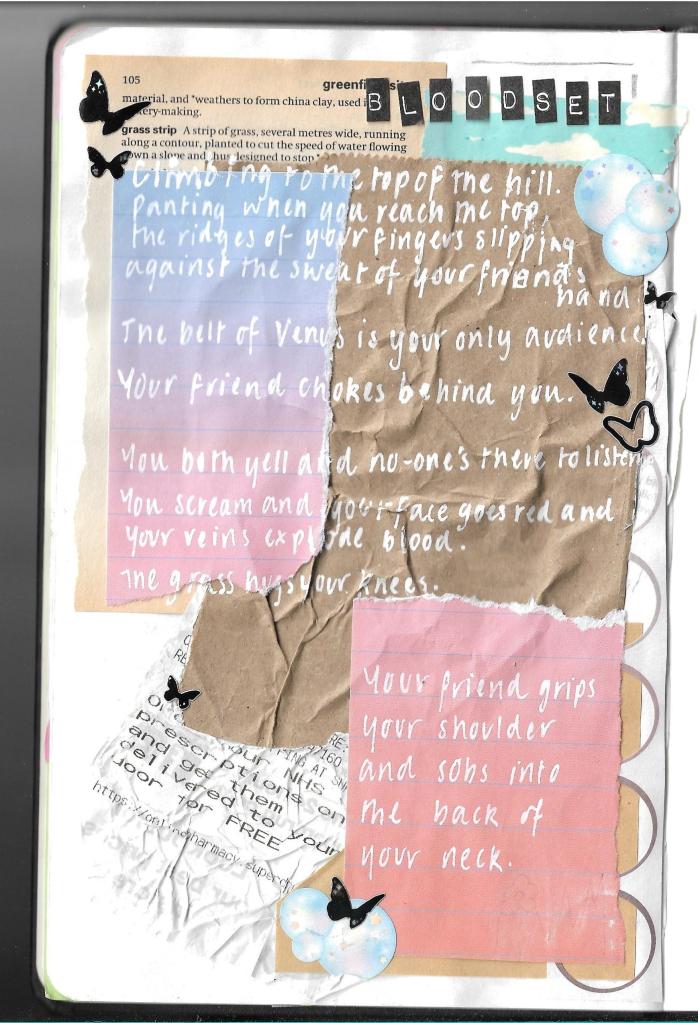 105
greenfi
BLOODSET
material, and *weathers to form china clay, used
ery-making.
grass strip A strip of grass, several metres wide, running
along a contour, planted to cut the speed of water flowing
own a slope and thus designed to stop
Climbing to the top of the hill.
panting when you reach the top,
the ridges of your fingers slipping
against the sweat of your friend's
hand
The belt of Venus is your only audience.
Your friend chokes behind you.
You both yell and no-one's there to listen
You scream and your face goes red and
your veins explode blood.
The grass hugs your knees.
Your friend grips
your shoulder
and sobs into
the back of
your neck.
RE:
/160
our NHS
prescriptions on
and get them
delivered to your
door for FREE